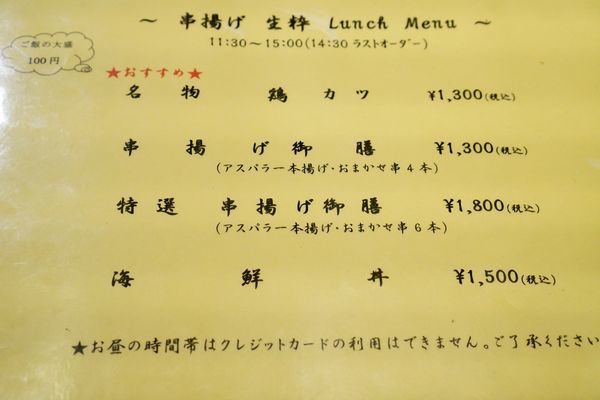 ～ 串揚げ 生粋 Lunch Menu ～
11:30～15:00(14:30 ラストオーダー)
ご飯の大盛
100円
★おすすめ★
名物 鶏カツ ¥1,300(税込)
串揚げ御膳 ¥1,300(税込)
(アスパラ一本揚げ・おまかせ串4本)
特選 串揚げ御膳 ¥1,800(税込)
(アスパラ一本揚げ・おまかせ串6本)
海鮮丼 ¥1,500(税込)
★お昼の時間帯はクレジットカードの利用はできません。ご了承ください